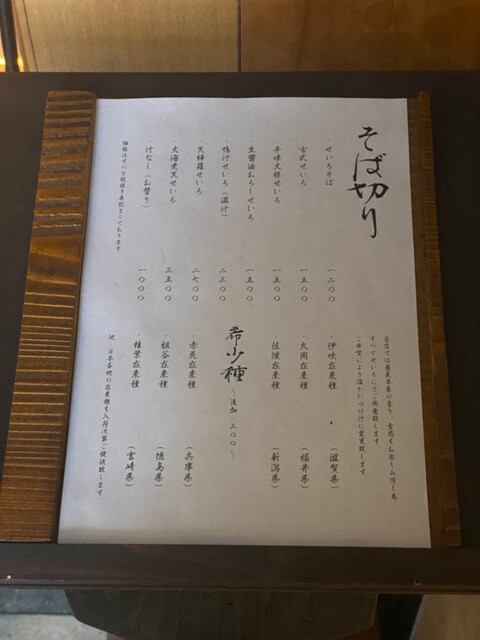 そば切り
・せいろそば 一二〇〇
・古式せいろ 一五〇〇
・辛味大根せいろ 一五〇〇
・生醤油おろしせいろ 一五〇〇
・鴨汁せいろ(温汁) 二三〇〇
・天婦羅せいろ 二七〇〇
・大海老天せいろ 三五〇〇
・汁なし(お替り) 一〇〇〇
価格はすべて税抜き表記をしております
当店では蕎麦本来の香り、食感をお楽しみ頂く為
すべてせいろにてご用意致します
ご希望により温かいつけ汁に変更致します
・伊吹在来種 (滋賀県)
・丸岡在来種 (福井県)
・佐渡在来種 (新潟県)
希少種 ～追加 三〇〇～
・赤花在来種 (兵庫県)
・祖谷在来種 (徳島県)
・椎葉在来種 (宮崎県)
他、日本各地の在来種を入荷次第ご提供致します。